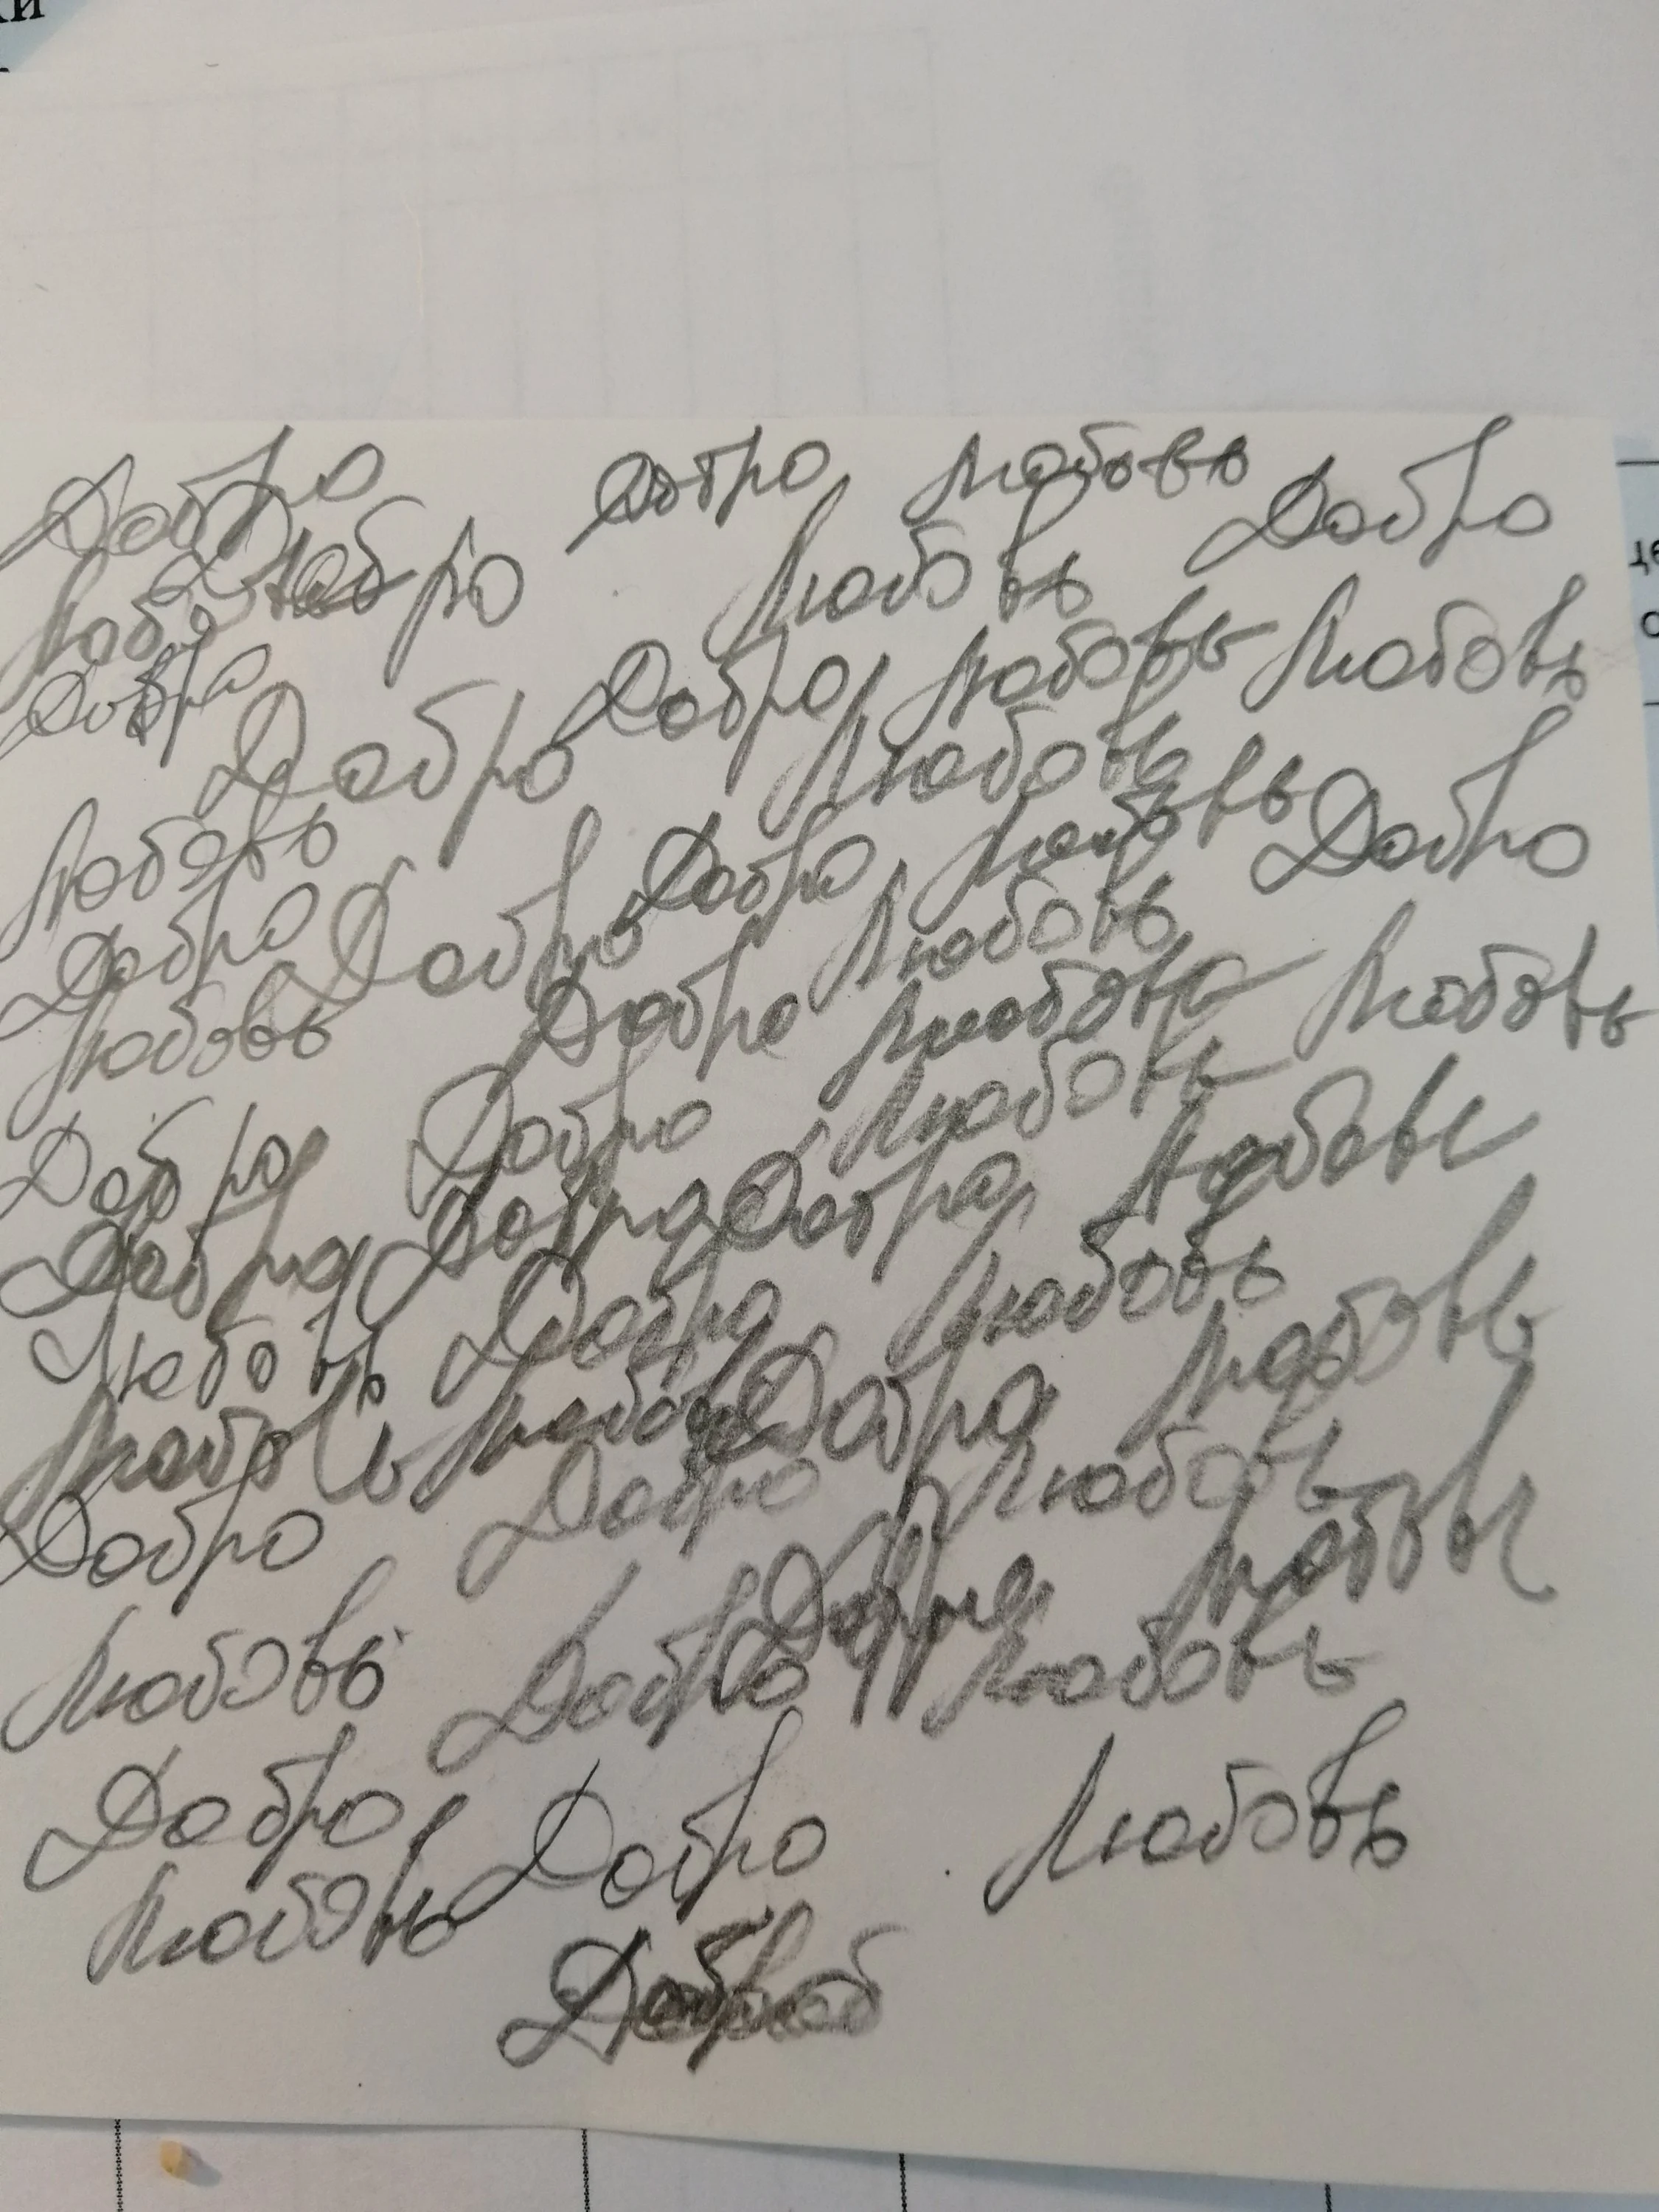 ки
Добро Добро, Любовь Добро
Добро Любовь
Добро Добро, Любовь Любовь
Добро Любовь
Любовь Добро, Любовь Добро
Добро Добро Любовь
Любовь Добро Любовь Любовь
Добро Добро Любовь
Добро Добро Добро, Любовь
Любовь Добро Любовь
Любовь Любовь Добро Любовь
Добро Добро Любовь
Любовь
Любовь Добро Любовь
Добро, Добро Любовь
Любовь